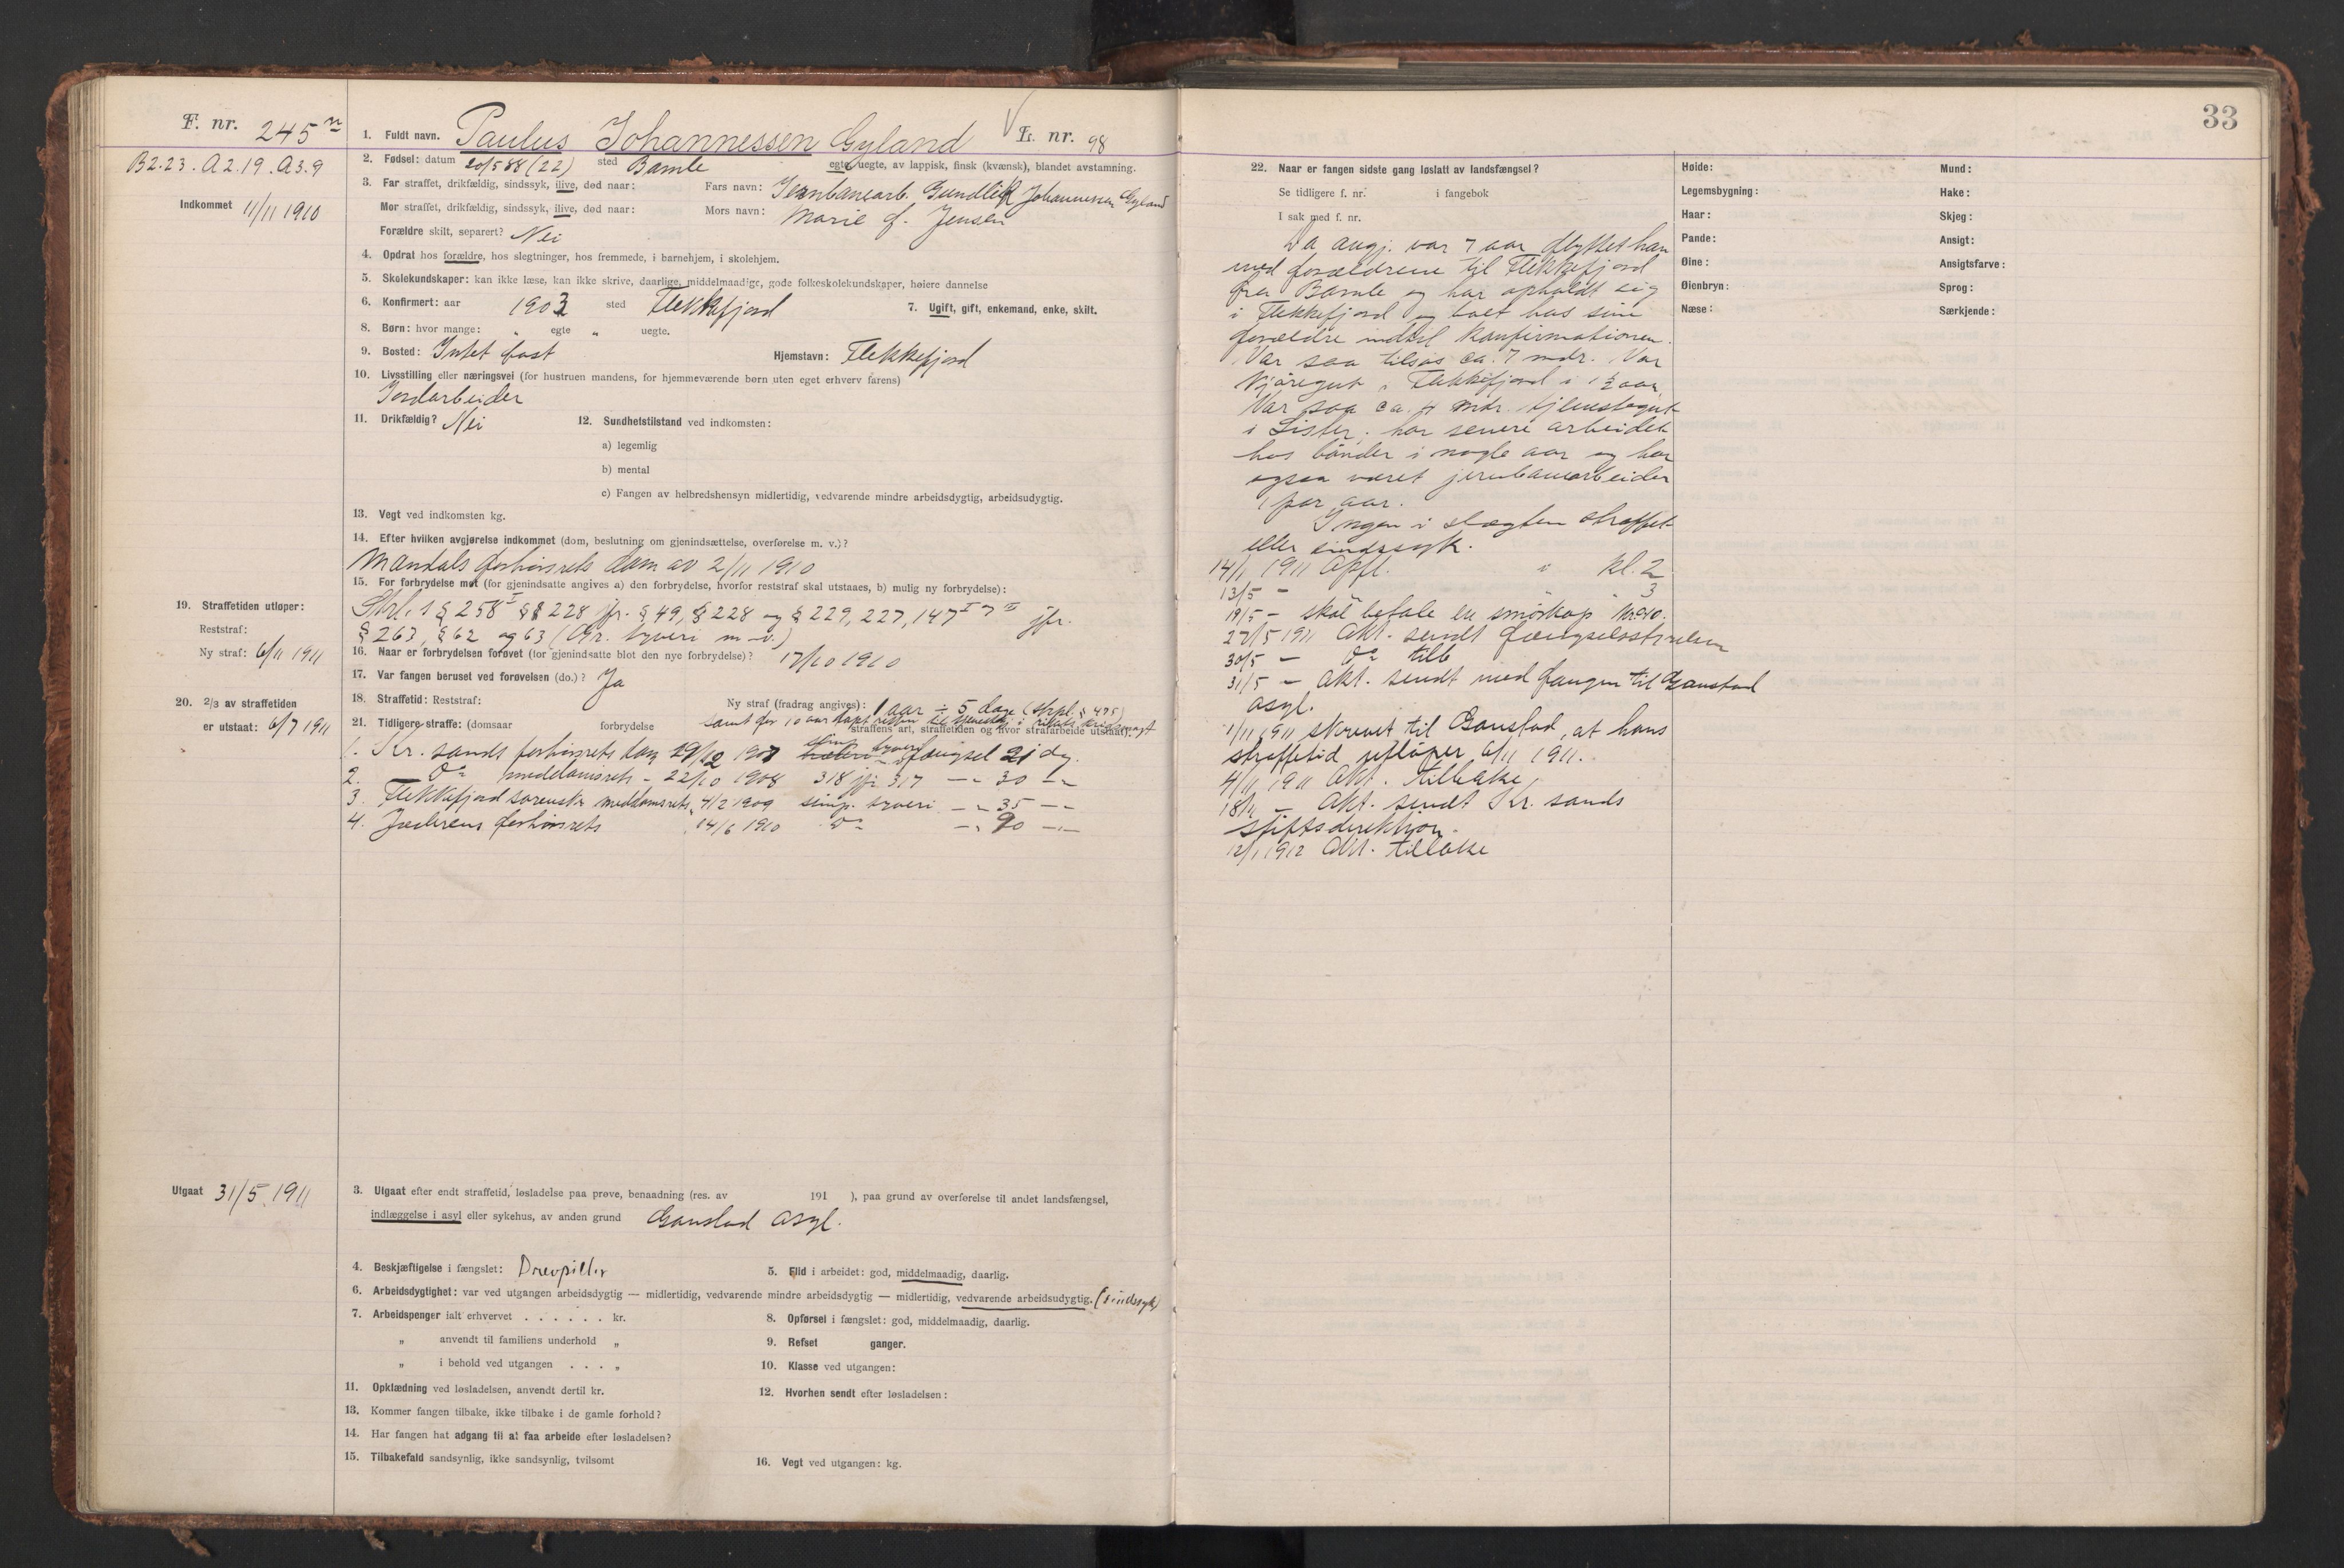 F. nr. 245
1. Fuldt navn. Paulus Johannessen Gyland L. nr. 98
B2.23. A2.19. A3.9
2. Fødsel: datum 20/5 88 (22) sted Bamle egte, uegte, av lappisk, finsk (kvænsk), blandet avstamning.
Indkommet 11/11 1910
3. Far straffet, drikfældig, sindssyk, ilive, død naar: Fars navn: Jernbanearb. Gundleik Johannessen Gyland
Mor straffet, drikfældig, sindssyk, ilive, død naar: Mors navn: Marie f. Jensen
Forældre skilt, separert? Nei
4. Opdrat hos forældre, hos slegtninger, hos fremmede, i barnehjem, i skolehjem.
5. Skolekundskaper: kan ikke læse, kan ikke skrive, daarlige, middelmaadige, gode folkeskolekundskaper, høiere dannelse
6. Konfirmert: aar 1903 sted Flekkefjord 7. Ugift, gift, enkemand, enke, skilt.
8. Børn: hvor mange: " egte " uegte.
9. Bosted: Intet fast Hjemstavn: Flekkefjord
10. Livsstilling eller næringsvei (for hustruen mandens, for hjemmeværende børn uten eget erhverv farens)
Jordarbeider
11. Drikfældig? Nei 12. Sundhetstilstand ved indkomsten:
a) legemlig
b) mental
c) Fangen av helbredshensyn midlertidig, vedvarende mindre arbeidsdygtig, arbeidsudygtig.
13. Vegt ved indkomsten kg.
14. Efter hvilken avgjørelse indkommet (dom, beslutning om gjenindsættelse, overførelse m. v.)?
Mandals forhørsrets dom av 2/11 1910
15. For forbrydelse mot (for gjenindsatte angives a) den forbrydelse, hvorfor reststraf skal utstaaes, b) mulig ny forbrydelse):
19. Straffetiden utløper:
Strl.s § 258 I §§ 228 jfr. § 49, § 228 og § 229, 227, 147 I II jfr.
Reststraf:
§ 263, § 62 og 63 (Gr. tyveri m. v.)
Ny straf: 6/11 1911
16. Naar er forbrydelsen forøvet (for gjenindsatte blot den nye forbrydelse)? 17/10 1910
17. Var fangen beruset ved forøvelsen (do.)? Ja
20. 2/3 av straffetiden
er utstaat: 6/7 1911
18. Straffetid: Reststraf: Ny straf (fradrag angives): 1 aar ÷ 5 dage (strpl. § 475)
samt for 10 aar tapt retten til tjeneste i rikets krigsmagt
21. Tidligere straffe: (domsaar forbrydelse straffens art, straffetiden og hvor strafarbeide utstaat):
1. Kr.sands forhørsrets dom 29/12 1907 simp. tyveri fængsel 21 dg.
2. do meddomsrets - 22/10 1908 318 jfr. 317 — " 30 — "
3. Flekkefjord sorenskr. meddomsrets " 4/2 1909 simp. tyveri — " 35 — "
4. Jæderens forhørsrets " 14/6 1910 do — " 90 — "
Utgaat 31/5 1911
3. Utgaat efter endt straffetid, løsladelse paa prøve, benaadning (res. av 191 ), paa grund av overførelse til andet landsfængsel,
indlæggelse i asyl eller sykehus, av anden grund Gaustad asyl.
4. Beskjæftigelse i fængslet: Drevpiller 5. Flid i arbeidet: god, middelmaadig, daarlig.
6. Arbeidsdygtighet: var ved utgangen arbeidsdygtig — midlertidig, vedvarende mindre arbeidsdygtig — midlertidig, vedvarende arbeidsudygtig. (sindssyk)
7. Arbeidspenger ialt erhvervet . . . . . . kr. 8. Opførsel i fængslet: god, middelmaadig, daarlig.
" anvendt til familiens underhold " 9. Refset ganger.
" i behold ved utgangen . . . " 10. Klasse ved utgangen:
11. Opklædning ved løsladelsen, anvendt dertil kr. 12. Hvorhen sendt efter løsladelsen:
13. Kommer fangen tilbake, ikke tilbake i de gamle forhold?
14. Har fangen hat adgang til at faa arbeide efter løsladelsen?
15. Tilbakefald sandsynlig, ikke sandsynlig, tvilsomt 16. Vegt ved utgangen: kg.
33
22. Naar er fangen sidste gang løslatt av landsfængsel?
Se tidligere f. nr. i fangebok
I sak med f. nr.
Da angj. var 7 aar flyttet han
med forældrene til Flekkefjord
fra Bamle og har opholdt sig
i Flekkefjord og boet hos sine
forældre indtil konfirmationen.
Var saa tilsjøs ca. 7 mdr. Var
kjøregut i Flekkefjord i 1 1/2 aar
Var saa ca. 4 mdr. tjenestegut
i Lister, har senere arbeidet
hos bønder i nogle aar og har
ogsaa været jernbanearbeider
i par aar.
Ingen i slægten straffet
eller sindssyk.
14/1 1911 Opfl. i kl. 2
13/5 — " " 3
19/5 — skal betale en smørkop kr. 0.40.
27/5 1911 Akt. sendt fængselsstyrelsen
30/5 — do tilb
31/5 — akt. sendt med fangen til Gaustad
asyl.
1/11 1911 skrevet til Gaustad, at hans
straffetid utløper 6/11 1911.
4/11 1911 Akt. tilbake,
18/11 — Akt. sendt Kr.sands
stiftsdirektion.
12/1 1912 Akt. tilbake
Høide:
Legemsbygning:
Haar:
Pande:
Øine:
Øienbryn:
Næse:
Mund:
Hake:
Skjeg:
Ansigt:
Ansigtsfarve:
Sprog:
Særkjende: